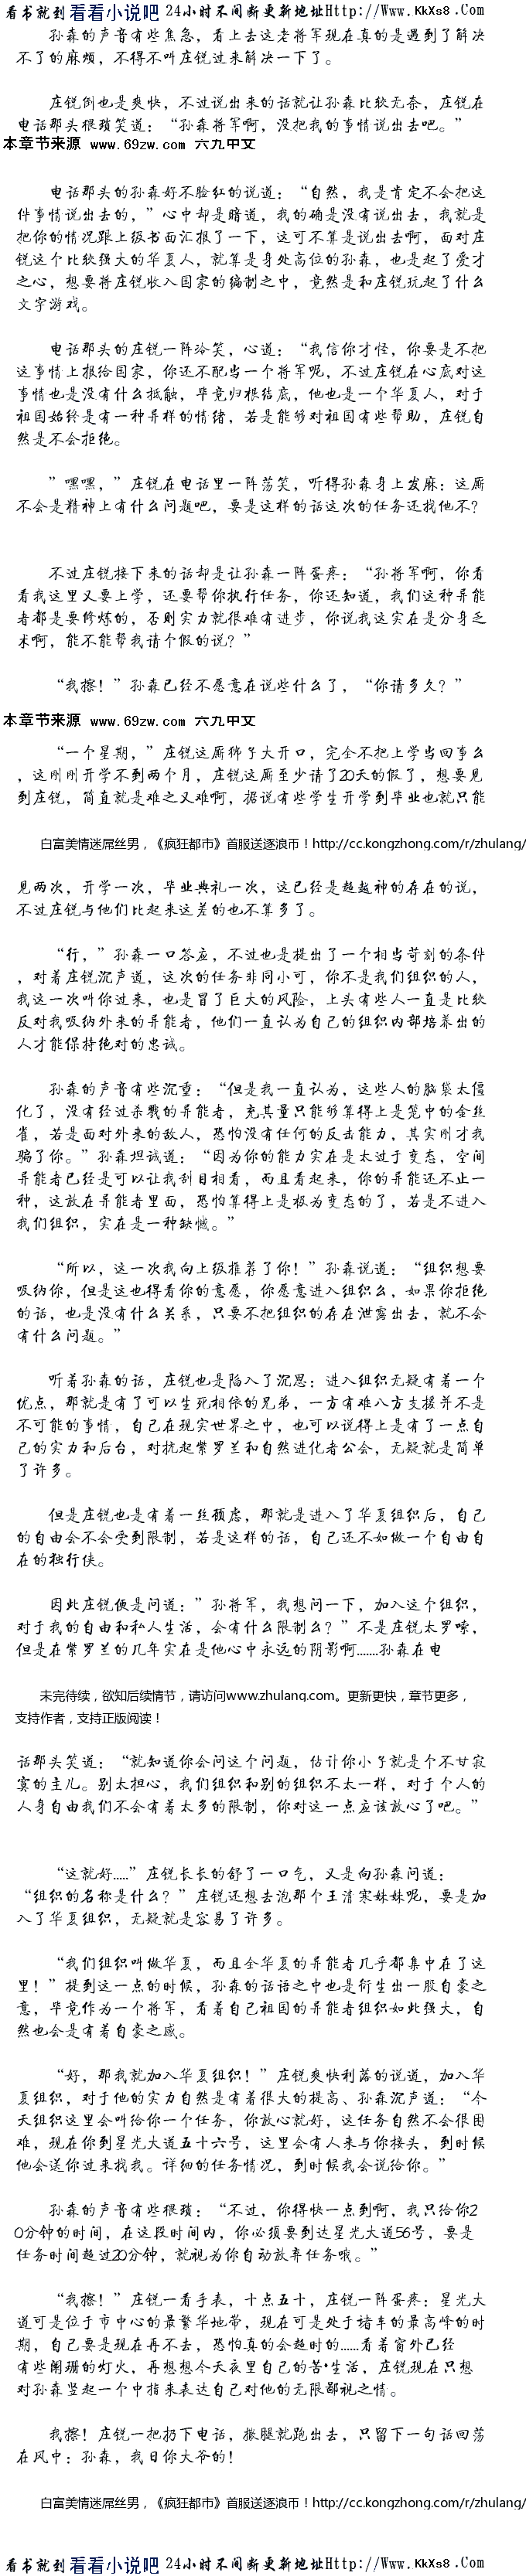 看书就到看看小说吧 24小时不间断更新地址Http://Www.KkXs8.Com
孙森的声音有些焦急，看上去这老将军现在真的是遇到了解决
不了的麻烦，不得不叫庄锐过来解决一下了。
庄锐倒也是爽快，不过说出来的话就让孙森比较无奈，庄锐在
电话那头猥琐笑道：“孙森将军啊，没把我的事情说出去吧。”
本章节来源 www.69zw.com 六九中文
电话那头的孙森好不脸红的说道：“自然，我是肯定不会把这
件事情说出去的，”心中却是暗道，我的确是没有说出去，我就是
把你的情况跟上级书面汇报了一下，这可不算是说出去啊，面对庄
锐这个比较强大的华夏人，就算是身处高位的孙森，也是起了爱才
之心，想要将庄锐收入国家的编制之中，竟然是和庄锐玩起了什么
文字游戏。
电话那头的庄锐一阵冷笑，心道：“我信你才怪，你要是不把
这事情上报给国家，你还不配当一个将军呢，不过庄锐在心底对这
事情也是没有什么抵触，毕竟归根结底，他也是一个华夏人，对于
祖国始终是有一种异样的情绪，若是能够对祖国有些帮助，庄锐自
然是不会拒绝。
”嘿嘿，”庄锐在电话里一阵荡笑，听得孙森身上发麻：这厮
不会是精神上有什么问题吧，要是这样的话这次的任务还找他不？
不过庄锐接下来的话却是让孙森一阵蛋疼：“孙将军啊，你看
看我这里又要上学，还要帮你执行任务，你还知道，我们这种异能
者都是要修炼的，否则实力就很难有进步，你说我这实在是分身乏
术啊，能不能帮我请个假的说？”
“我擦！”孙森已经不愿意在说些什么了，“你请多久？”
本章节来源 www.69zw.com 六九中文
“一个星期，”庄锐这厮狮子大开口，完全不把上学当回事么
，这刚刚开学不到两个月，庄锐这厮至少请了20天的假了，想要见
到庄锐，简直就是难之又难啊，据说有些学生开学到毕业也就只能
白富美情迷屌丝男，《疯狂都市》首服送逐浪币！http://cc.kongzhong.com/r/zhulang/
见两次，开学一次，毕业典礼一次，这已经是超越神的存在的说，
不过庄锐与他们比起来这差的也不算多了。
“行，”孙森一口答应，不过也是提出了一个相当苛刻的条件
，对着庄锐沉声道，这次的任务非同小可，你不是我们组织的人，
我这一次叫你过来，也是冒了巨大的风险，上头有些人一直是比较
反对我吸纳外来的异能者，他们一直认为自己的组织内部培养出的
人才能保持绝对的忠诚。
孙森的声音有些沉重：“但是我一直认为，这些人的脑袋太僵
化了，没有经过杀戮的异能者，充其量只能够算得上是笼中的金丝
雀，若是面对外来的敌人，恐怕没有任何的反击能力，其实刚才我
骗了你。”孙森坦诚道：“因为你的能力实在是太过于变态，空间
异能者已经是可以让我刮目相看，而且看起来，你的异能还不止一
种，这放在异能者里面，恐怕算得上是极为变态的了，若是不进入
我们组织，实在是一种缺憾。”
“所以，这一次我向上级推荐了你！”孙森说道：“组织想要
吸纳你，但是这也得看你的意愿，你愿意进入组织么，如果你拒绝
的话，也是没有什么关系，只要不把组织的存在泄露出去，就不会
有什么问题。”
听着孙森的话，庄锐也是陷入了沉思：进入组织无疑有着一个
优点，那就是有了可以生死相依的兄弟，一方有难八方支援并不是
不可能的事情，自己在现实世界之中，也可以说得上是有了一点自
己的实力和后台，对抗起紫罗兰和自然进化者公会，无疑就是简单
了许多。
但是庄锐也是有着一丝顾虑，那就是进入了华夏组织后，自己
的自由会不会受到限制，若是这样的话，自己还不如做一个自由自
在的独行侠。
因此庄锐便是问道：”孙将军，我想问一下，加入这个组织，
对于我的自由和私人生活，会有什么限制么？”不是庄锐太罗嗦，
但是在紫罗兰的几年实在是他心中永远的阴影啊.......孙森在电
未完待续，欲知后续情节，请访问www.zhulang.com。更新更快，章节更多，
支持作者，支持正版阅读！
话那头笑道：“就知道你会问这个问题，估计你小子就是个不甘寂
寞的主儿。别太担心，我们组织和别的组织不太一样，对于个人的
人身自由我们不会有着太多的限制，你对这一点应该放心了吧。”
“这就好.....”庄锐长长的舒了一口气，又是向孙森问道：
“组织的名称是什么？”庄锐还想去泡那个王清寒妹妹呢，要是加
入了华夏组织，无疑就是容易了许多。
“我们组织叫做华夏，而且全华夏的异能者几乎都集中在了这
里！”提到这一点的时候，孙森的话语之中也是衍生出一股自豪之
意，毕竟作为一个将军，看着自己祖国的异能者组织如此强大，自
然也会是有着自豪之感。
“好，那我就加入华夏组织！”庄锐爽快利落的说道，加入华
夏组织，对于他的实力自然是有着很大的提高、孙森沉声道：“今
天组织这里会叫给你一个任务，你放心就好，这任务自然不会很困
难，现在你到星光大道五十六号，这里会有人来与你接头，到时候
他会送你过来找我。详细的任务情况，到时候我会说给你。”
孙森的声音有些猥琐：“不过，你得快一点到啊，我只给你2
0分钟的时间，在这段时间内，你必须要到达星光大道56号，要是
任务时间超过20分钟，就视为你自动放弃任务哦。”
“我擦！”庄锐一看手表，十点五十，庄锐一阵蛋疼：星光大
道可是位于市中心的最繁华地带，现在可是处于堵车的最高峰的时
期，自己要是现在再不去，恐怕真的会超时的......看着窗外已经
有些阑珊的灯火，再想想今天夜里自己的苦*生活，庄锐现在只想
对孙森竖起一个中指来表达自己对他的无限鄙视之情。
我擦！庄锐一把扔下电话，撒腿就跑出去，只留下一句话回荡
在风中：孙森，我日你大爷的！
白富美情迷屌丝男，《疯狂都市》首服送逐浪币！http://cc.kongzhong.com/r/zhulang/
看书就到看看小说吧 24小时不间断更新地址Http://Www.KkXs8.Com